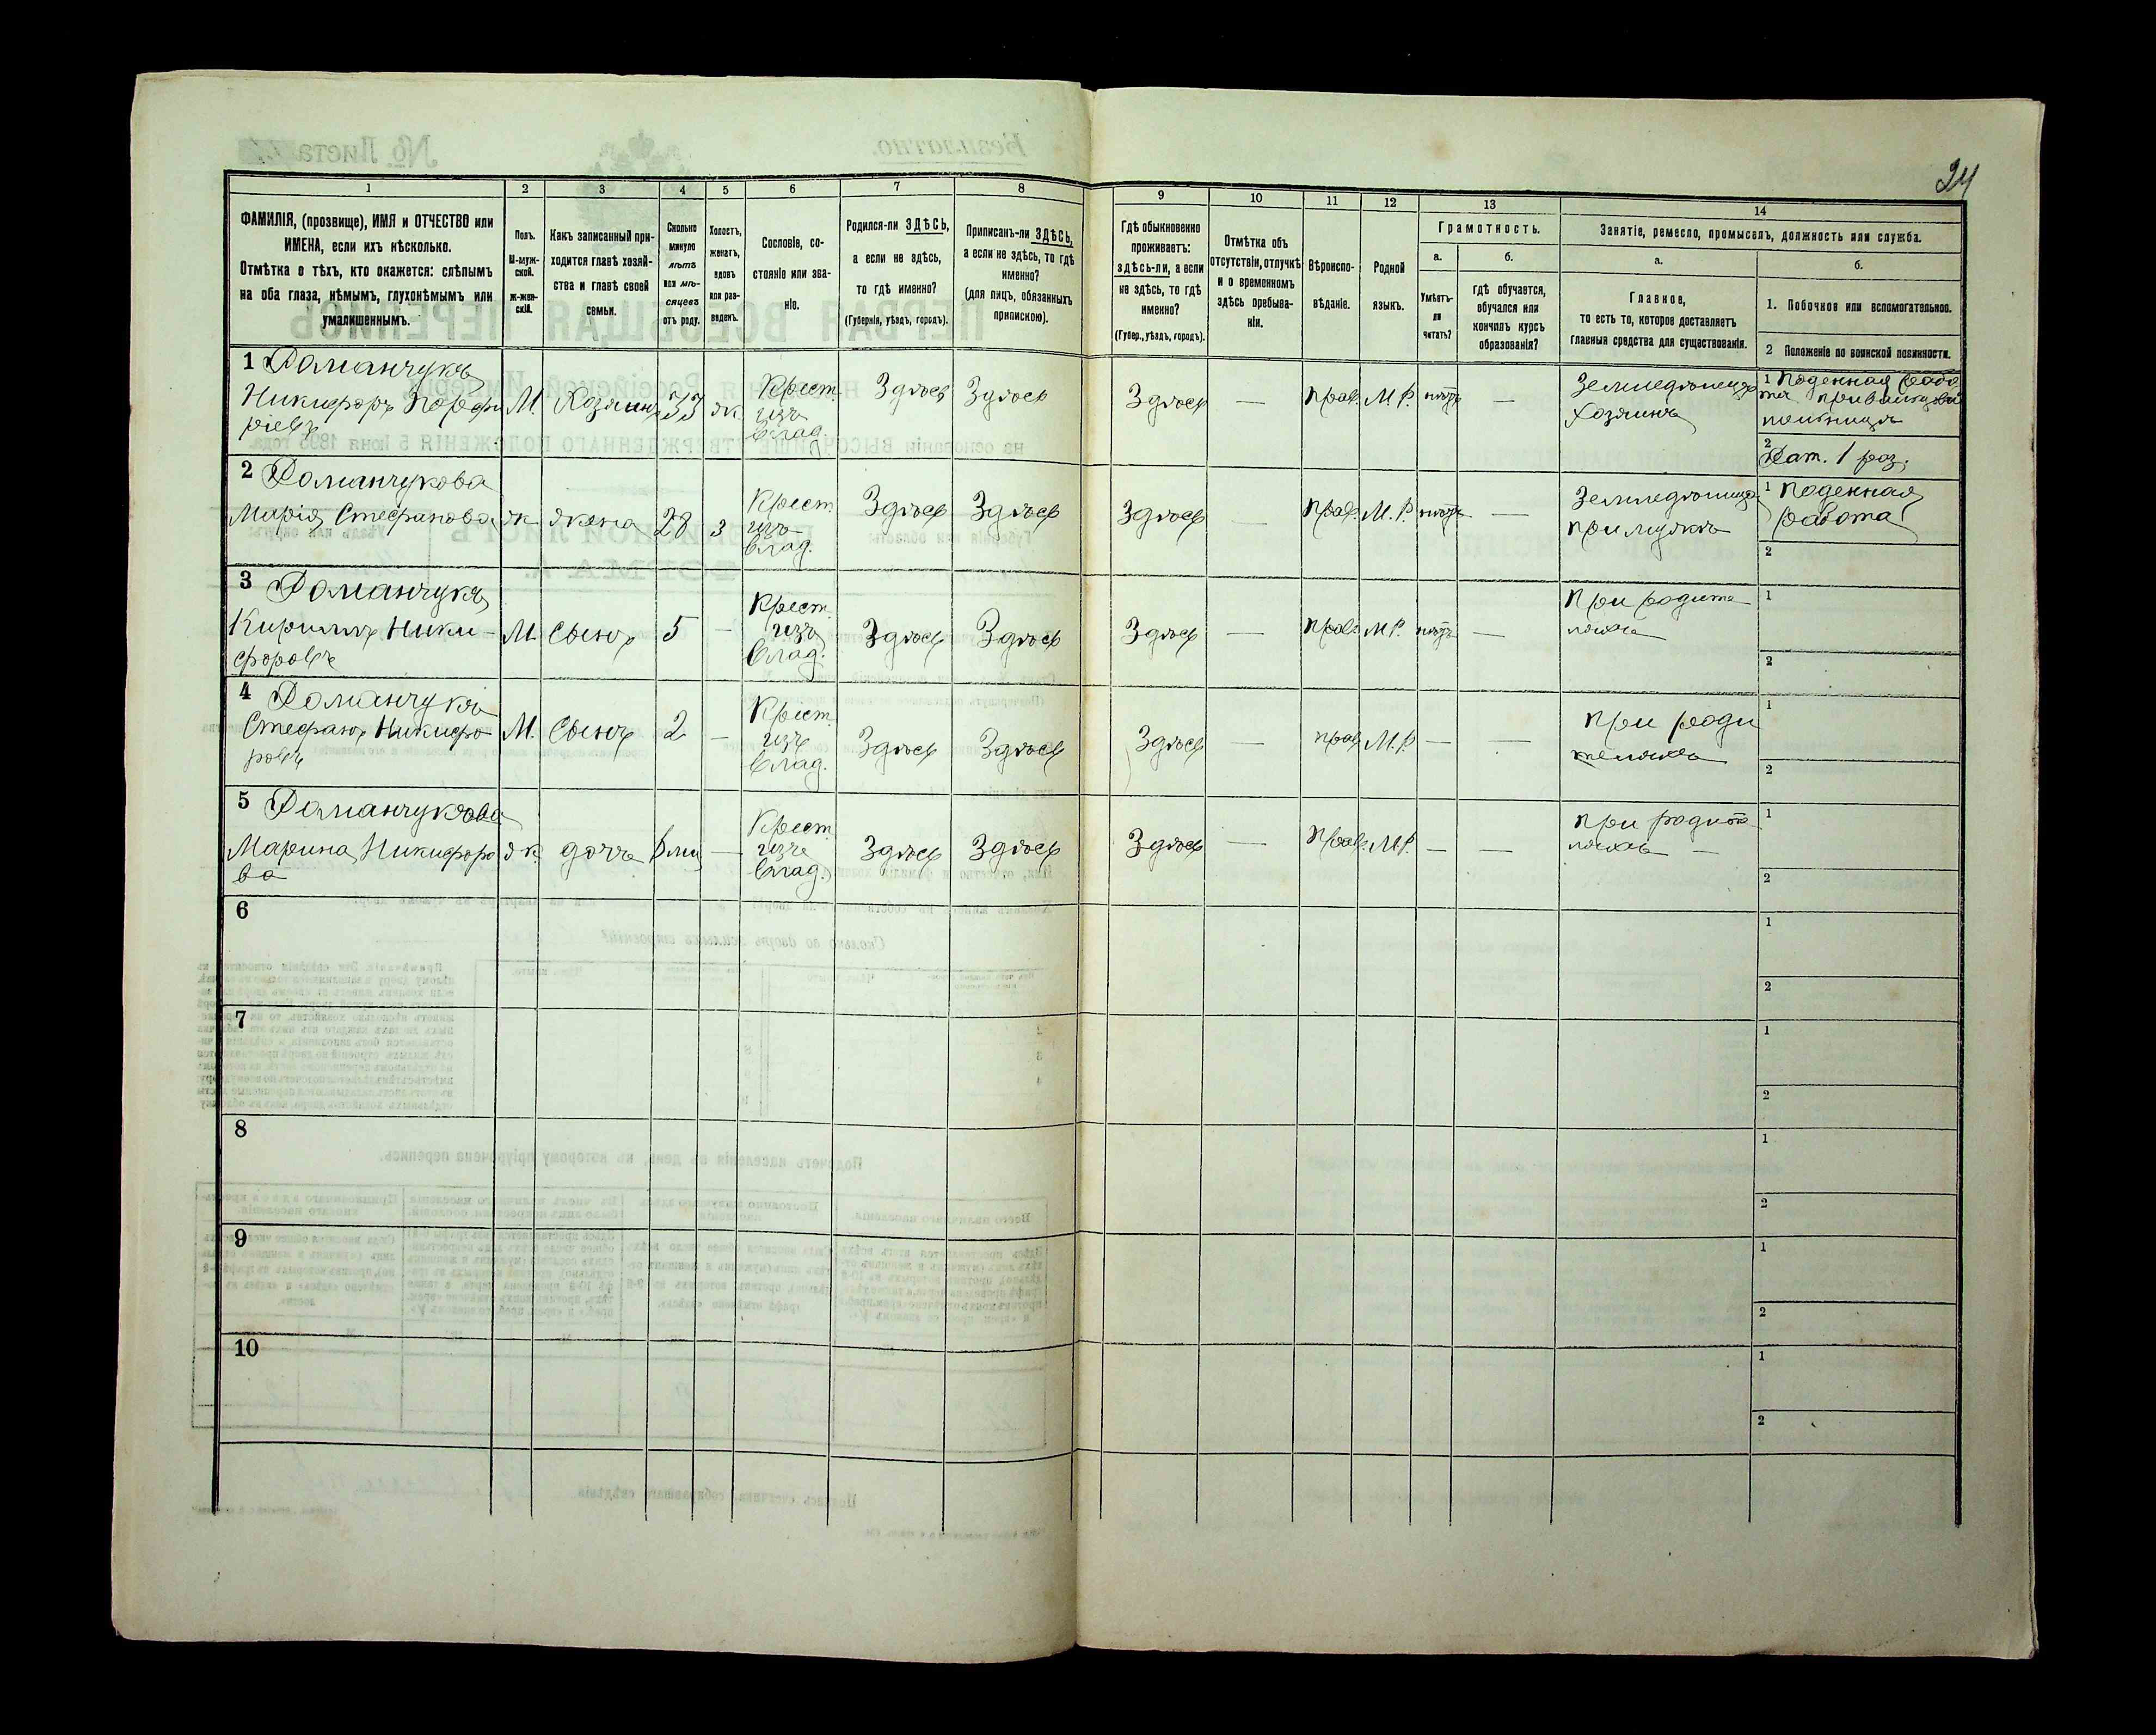 24
1 2 3 4 5 6 7 8 9 10 11 12 13 14
ФАМИЛІЯ, (прозвище), ИМЯ и ОТЧЕСТВО или
ИМЕНА, если ихъ нѣсколько.
Отмѣтка о тѣхъ, кто окажется: слѣпымъ
на оба глаза, нѣмымъ, глухонѣмымъ или
умалишеннымъ.
Полъ.
М-муж-
ской.
Ж-жен-
скій.
Какъ записанный при-
ходится главѣ хозяй-
ства и главѣ своей
семьи.
Сколько
минуло
лѣтъ
или мѣ-
сяцевъ
отъ роду.
Холостъ,
женатъ,
вдовъ
или раз-
веденъ.
Сословіе, со-
стояніе или зва-
ніе.
Родился-ли ЗДѢСЬ,
а если не здѣсь,
то гдѣ именно?
(Губернія, уѣздъ, городъ).
Приписанъ-ли ЗДѢСЬ,
а если не здѣсь, то гдѣ
именно?
(для лицъ, обязанныхъ
припискою).
Гдѣ обыкновенно
проживаетъ:
здѣсь-ли, а если
не здѣсь, то гдѣ
именно?
(Губер., уѣздъ, городъ).
Отмѣтка объ
отсутствіи, отлучкѣ
и о временномъ
здѣсь пребыва-
ніи.
Вѣроиспо-
вѣданіе.
Родной
языкъ.
Грамотность.
а.
Умѣетъ-
ли
читать?
б.
гдѣ обучается,
обучался или
кончилъ курсъ
образованія?
Занятіе, ремесло, промыселъ, должность или служба.
а.
Главное,
то есть то, которое доставляетъ
главныя средства для существованія.
б.
1. Побочное или вспомогательное.
2 Положеніе по воинской повинности.
1 Романчукъ
Никифоръ Порфи
ріевъ
М. Хозяинъ 33 ж.
Крест.
изъ
влад.
Здѣсь Здѣсь Здѣсь — Прав. М.Р. нѣтъ —
Земледѣлецъ
хозяинъ
1 Поденная рабо
та
2
Рат. 1 раз.
2 Романчукова
Марія Стефанова ж жена 28 з
Крест.
изъ
влад.
Здѣсь Здѣсь Здѣсь — Прав. М.Р. нѣтъ —
Земледѣлица
при мужѣ
1 Поденная
работа
2
3 Романчукъ
Кириллъ Ники-
форовъ
М. Сынъ 5 —
Крест.
изъ
влад.
Здѣсь Здѣсь Здѣсь — Прав. М.Р. нѣтъ —
При родите
ляхъ
1
2
4 Романчукъ
Стефанъ Никифо
ровъ
М. Сынъ 2 —
Крест.
изъ
влад.
Здѣсь Здѣсь Здѣсь — прав. М.Р. — —
При роди
теляхъ
1
2
5 Романчукова
Марина Никифоро
ва
ж. дочь —
Крест.
изъ
влад.
Здѣсь Здѣсь Здѣсь — Прав. М.Р. — —
При родите
ляхъ —
1
2
6
1
2
7
1
2
8
1
2
9
1
2
10
1
2